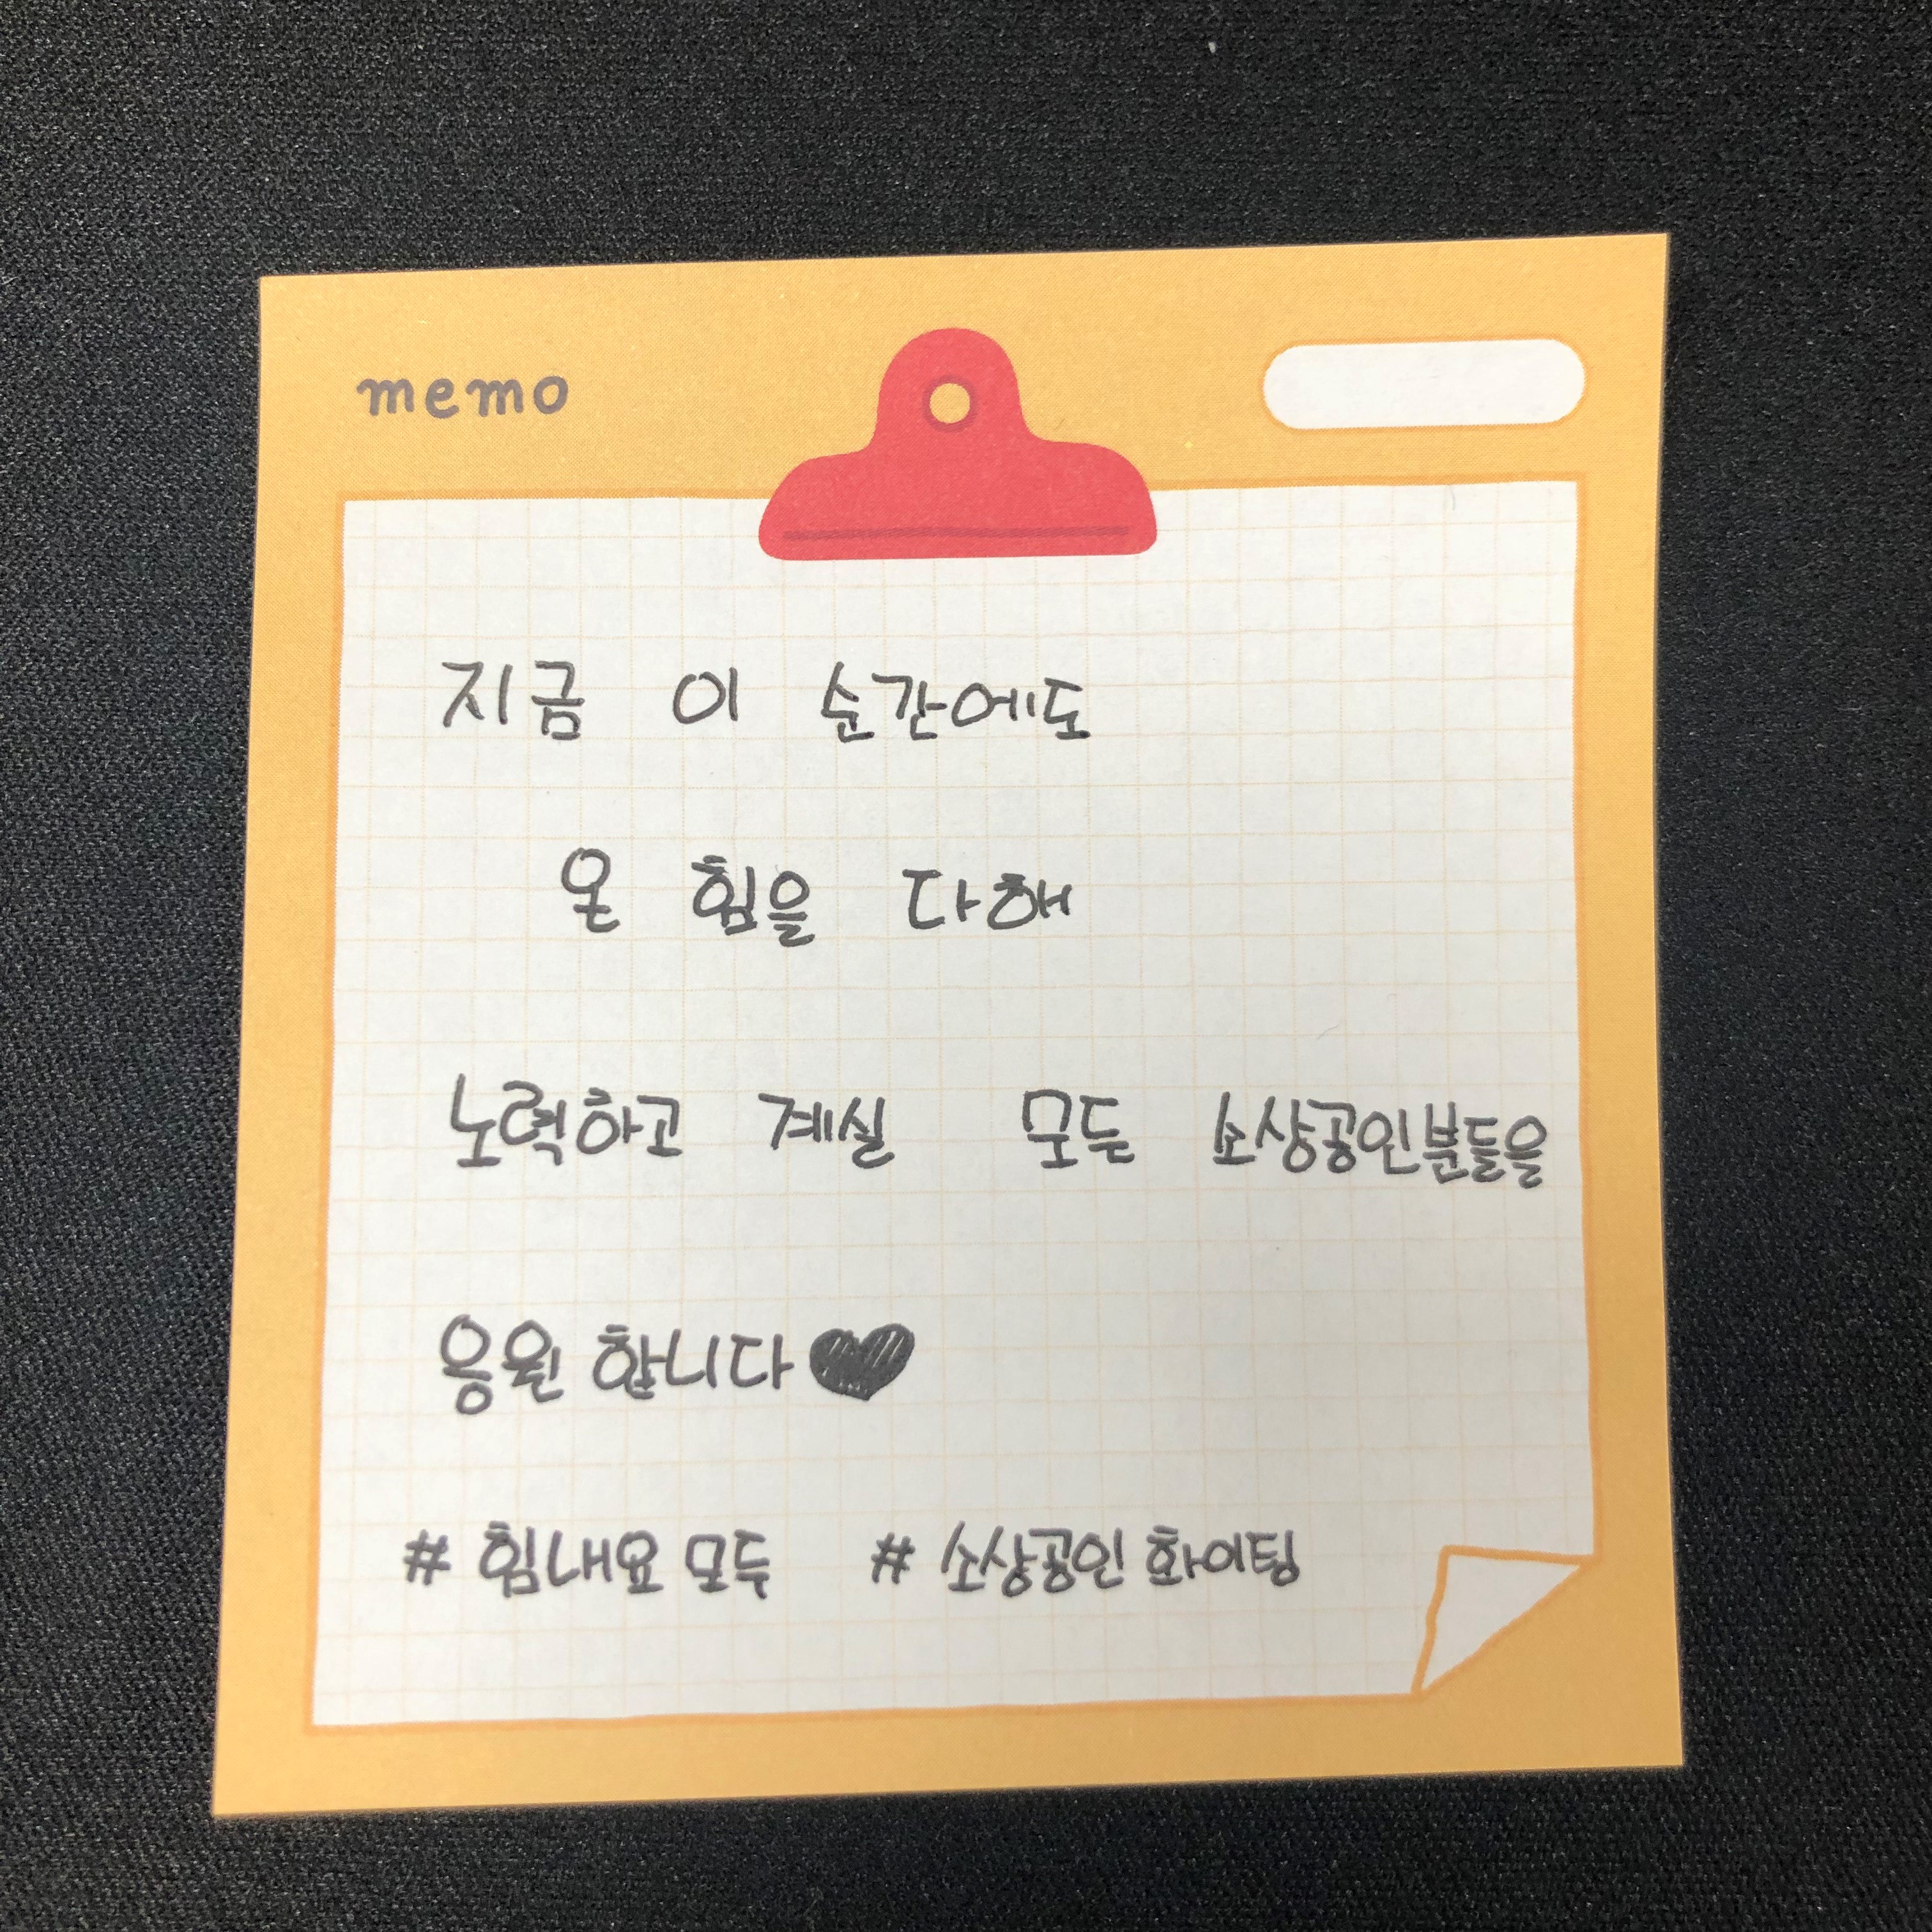 memo
지금 이 순간에도
온 힘을 다해
노력하고 계실 모든 소상공인분들을
응원 합니다♥
# 힘내요 모두 # 소상공인 화이팅